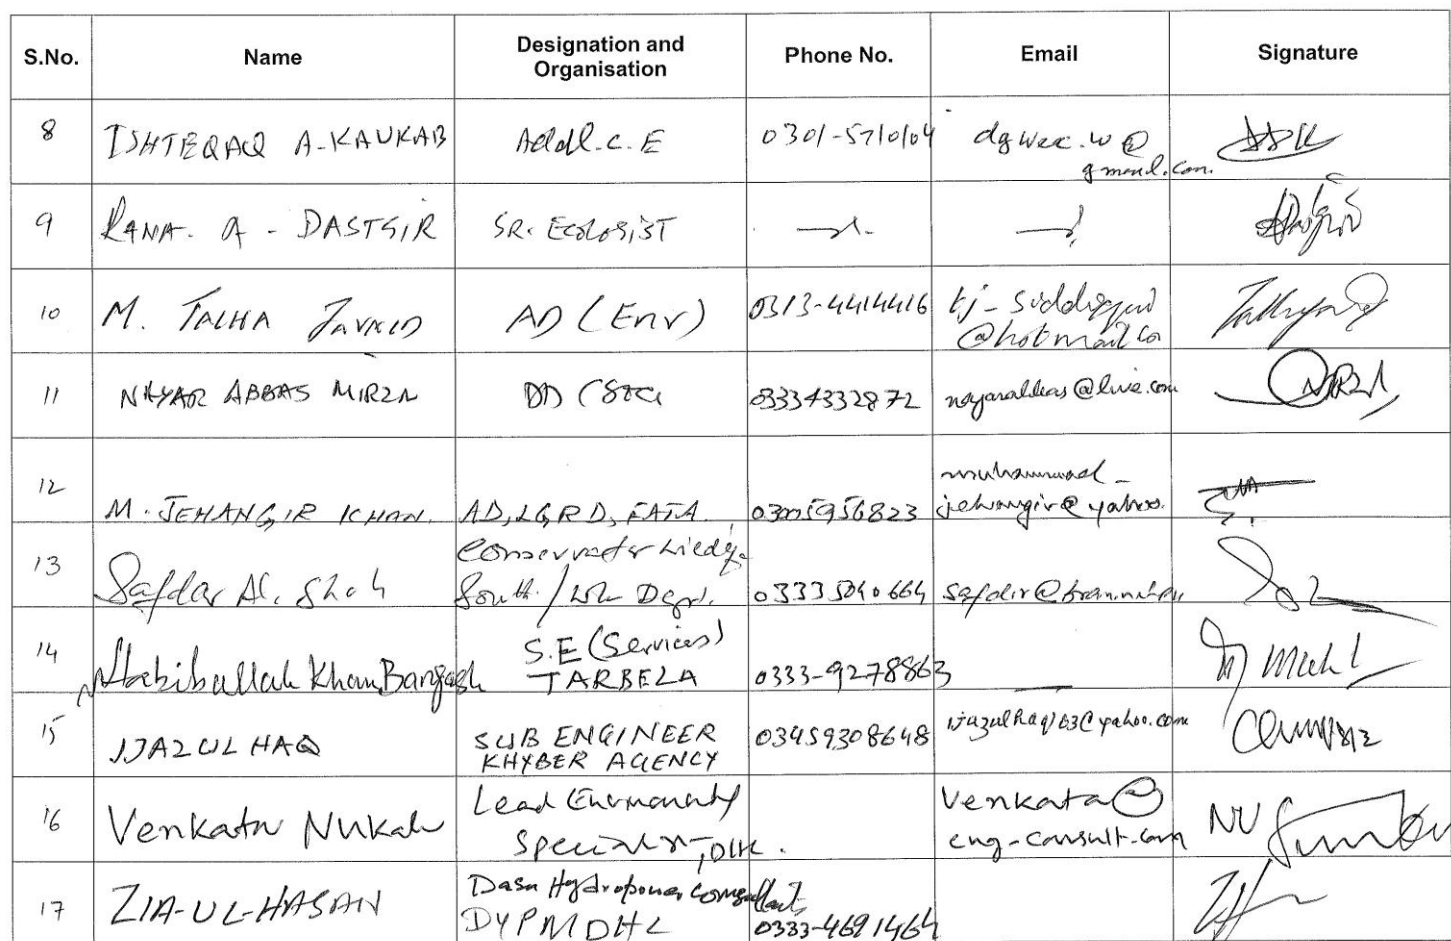 S.No. Name Designation and Organisation Phone No. Email Signature
8 ISHTEQAQ A-KAUKAB Addl. C. E 0301-5710104 dgwec.w@
gmail.com.
9 RANA. A - DASTGIR SR. ECOLOGIST
10 M. TALHA JAVAID AD (Env) 0313-4414416 tj-siddiqui
@hotmail.co
11 NAYAR ABBAS MIRZA DD 03334332872 nayarabbas@live.com
12 muhammad-
M. JEHANGIR KHAN. AD, LGRD, FATA. 03005956823 jehangir@yahoo.
13 Conservator
Safdar Ali Shah South / Dept. 03335040664
14 S.E (Services)
Habibullah Khan Bangash TARBELA 0333-9278863
15 IJAZUL HAQ SUB ENGINEER 03459308648 ijazulhaq63@yahoo.com
KHYBER AGENCY
16 Venkata Nukala Lead Venkata@
Specialist, DHC. eng-consult.com
17 ZIA-UL-HASAN Dasu Hydropower Consultants
DYPM DHC 0333-4691464